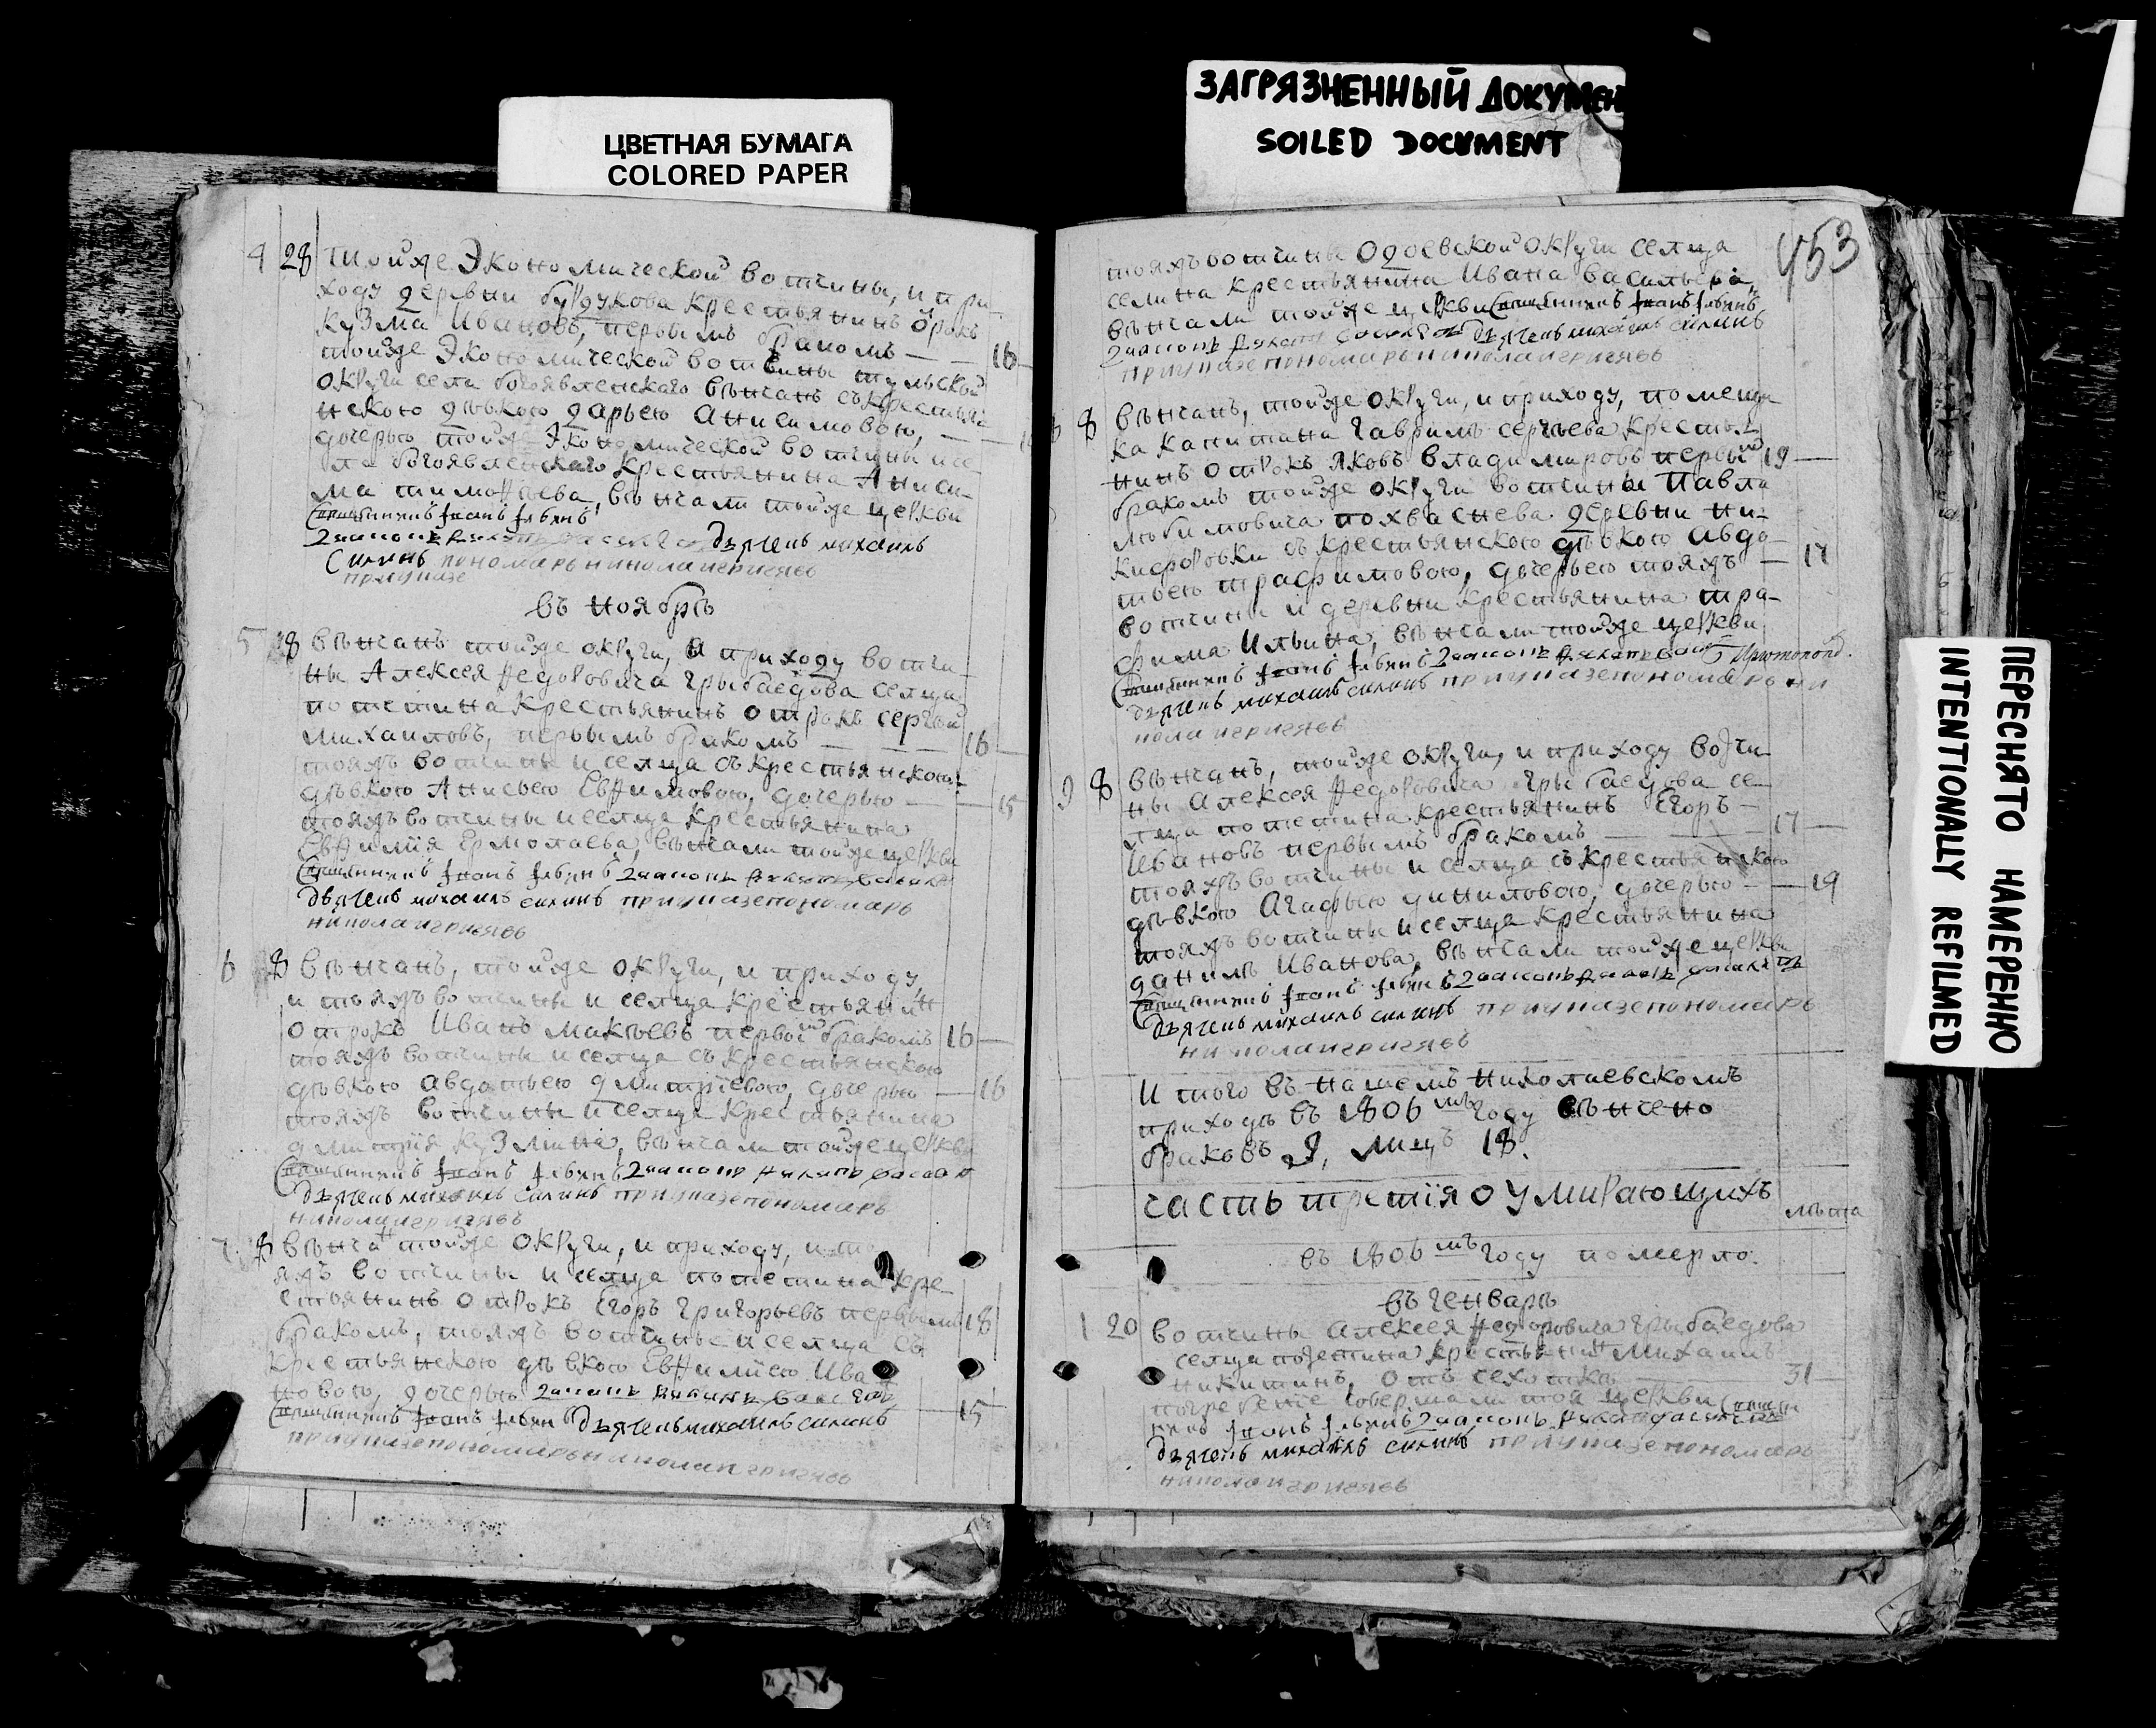 ЦВЕТНАЯ БУМАГА
COLORED PAPER
ЗАГРЯЗНЕННЫЙ ДОКУМЕН
SOILED DOCUMENT
453
4 28 тойже Экономической вотчины, и при
ходу деревни крестьянинъ отрокъ
Кузма Ивановъ, первымъ бракомъ 16
тойже Экономической вотчины тульской
округи села богоявленскаго венчанъ съ крестья
нскою девкою дарьею анисимовою,
дочерью тойже Экономической вотчины и се
ла богоявленскаго крестьянина Аниси
ма тимофѣева, вѣнчали тойже церкви
Священникъ Іоанъ
дьячекъ михаилъ
силинъ пономарь николаи григяевъ
приуказе
въ ноябрѣ
5 8 вѣнчанъ тойже округи, и приходу вотчи
ны Алексея Федоровича грыбаедова селца
потетина крестьянинъ отрокъ сергѣй
михаиловъ, первымъ бракомъ 16
тояжъ вотчины и селца съ крестьянскою
дѣвкою Анисьею Евфимовою, дочерью 15
тояжъ вотчины и селца крестьянина
Евфимия Ермолаева, вѣнчали тойже церкви
Священникъ Іоанъ
дьячекъ михаилъ силинъ приуказе пономарь
николаи григяевъ
6 8 вѣнчанъ, тойже округи, и приходу,
и тояжъ вотчины и селца крестьянин
отрокъ Иванъ макѣевъ первой бракомъ 16
тояжъ вотчины и селца съ крестьянскою
дѣвкою авдотьею дмитріевою, дочерью 16
тояжъ вотчины и селца крестьянина
дмитрія кузмина, вѣнчали тойже церкви
Священникъ Іоанъ
дьячекъ михаилъ силинъ приуказе пономарь
николаи григяевъ
7 8 вѣнчан тойже округи, и приходу, и то
яжъ вотчины и селца потетина кре
стьянинъ отрокъ Егоръ григорьевъ первымъ 18
бракомъ, тояжъ вотчины и селца съ
крестьянскою дѣвкою Евфиміею Ива
новою, дочерью
Священникъ Іоанъ дьячекъ михаилъ силинъ 15
приуказе пономарь николаи григяевъ
тояжъ вотчины Одоевской округи селца
селина крестьянина Ивана васильева,
вѣнчали тойже церкви Священникъ Іоанъ
дьячекъ михаилъ силинъ
приуказе пономарь николаи григяевъ
8 8 вѣнчанъ, тойже округи, и приходу, помещи
ка капитана гаврилы сергѣева крестья
нинъ отрокъ яковъ владимировъ первым 19
бракомъ тойже округи вотчины Павла
любимовича похваснева деревни ни
кифоровки съ крестьянскою дѣвкою авдо
тьею трафимовою, дочерью тояжъ 17
вотчины и деревни крестьянина тра
фима Ильина, вѣнчали тойже церкви
Священникъ Іоанъ
дьячекъ михаилъ силинъ приуказе пономарь ни
колаи григяевъ
9 8 вѣнчанъ, тойже округи, и приходу вотчи
ны алексея Федоровича грыбаедова се
лца потетина крестьянинъ Егоръ
Ивановъ первымъ бракомъ 17
тояжъ вотчины и селца съ крестьянскою
дѣвкою Агафьею даниловою, дочерью 19
тояжъ вотчины и селца крестьянина
данилы Иванова, вѣнчали тойже церкви
Священникъ Іоанъ
дьячекъ михаилъ силинъ приуказе пономарь
николаи григяевъ
Итого въ нашемъ николаевскомъ
приходѣ въ 1806мъ году вѣнчено
браковъ 9, лицъ 18.
часть третія о умирающихъ
лѣта
въ 1806мъ году померло.
въ генварѣ
1 20 вотчины алексея Федоровича грыбаедова
селца потетина крестьянинъ михаилъ
никитинъ, отъ сехотки 31
погребение совершали тоя церкви священ
никъ Іоанъ
дьячекъ михаилъ силинъ приуказе пономарь
николаи григяевъ
ПЕРЕСНЯТО НАМЕРЕННО
INTENTIONALLY REFILMED